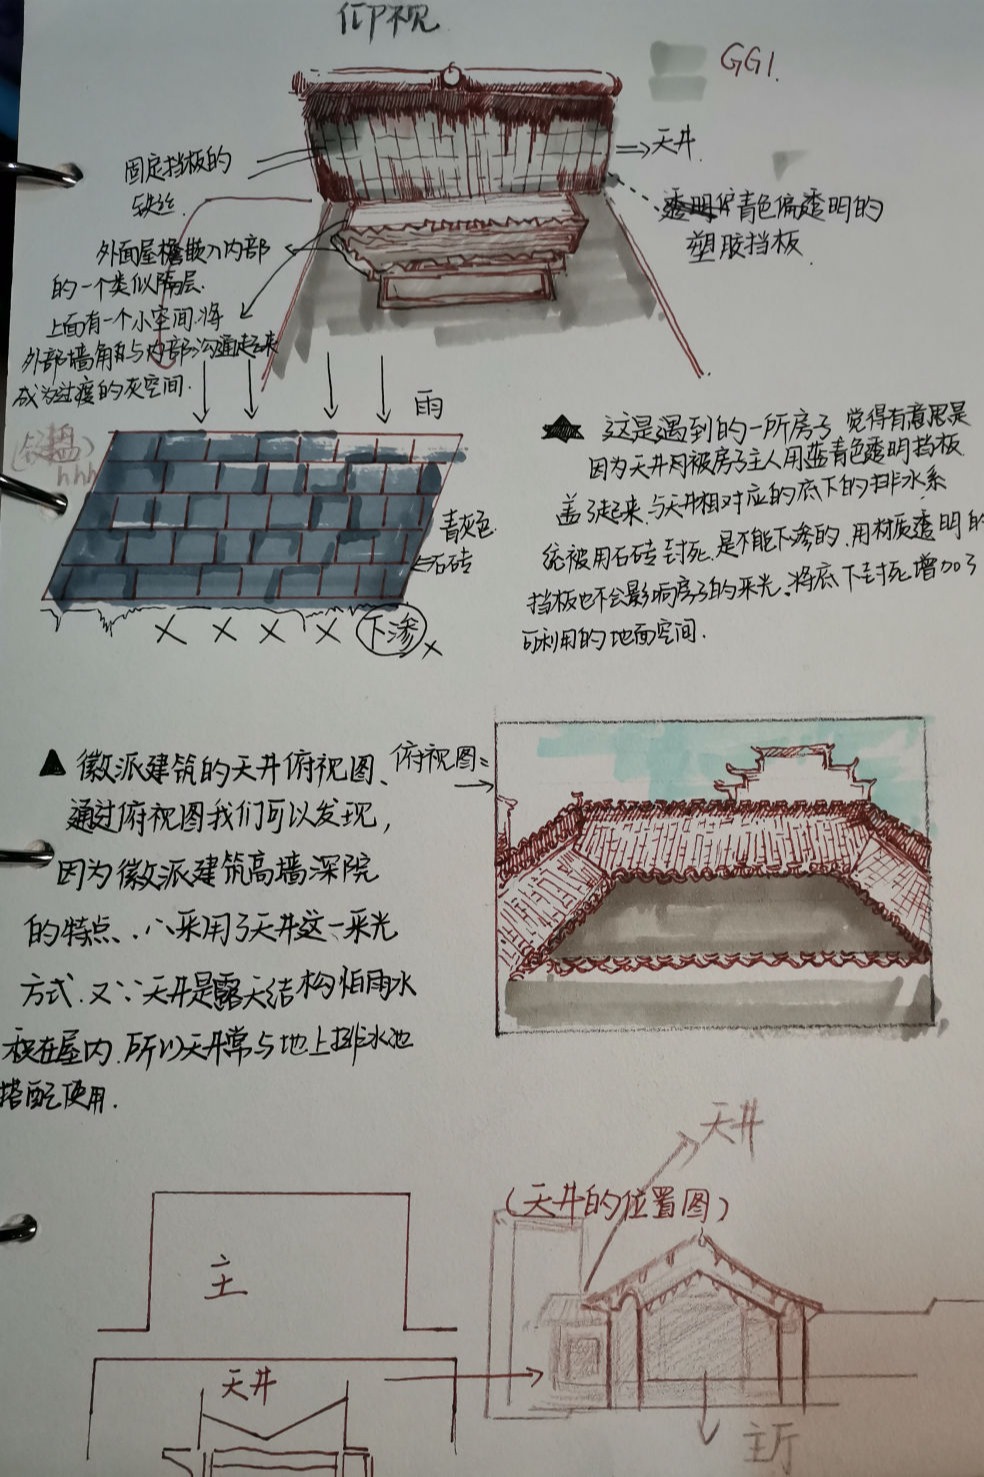 仰视
GG1.
固定挡板的
铁丝.
天井.
透明 青色偏透明的
塑胶挡板.
外面屋檐嵌入内部
的一个类似隔层.
上面有一个小空间.将
外部墙角与内部沟通起来
成为过度的灰空间.
雨
hhh
青灰色
石砖
下渗
这是遇到的一所房子 觉得有意思是
因为天井内被房子主人用蓝青色透明挡板
盖了起来,与天井相对应的底下的排水系
统被用石砖封死,是不能下渗的,用材质透明的
挡板也不会影响房子的采光,将底下封死增加了
可利用的地面空间.
徽派建筑的天井俯视图、
俯视图:
通过俯视图我们可以发现,
因为徽派建筑高墙深院
的特点、∴采用了天井这一采光
方式.又∵天井是露天结构怕雨水
积在屋内.所以天井常与地上排水池
搭配使用.
天井
(天井的位置图)
主
天井
主厅